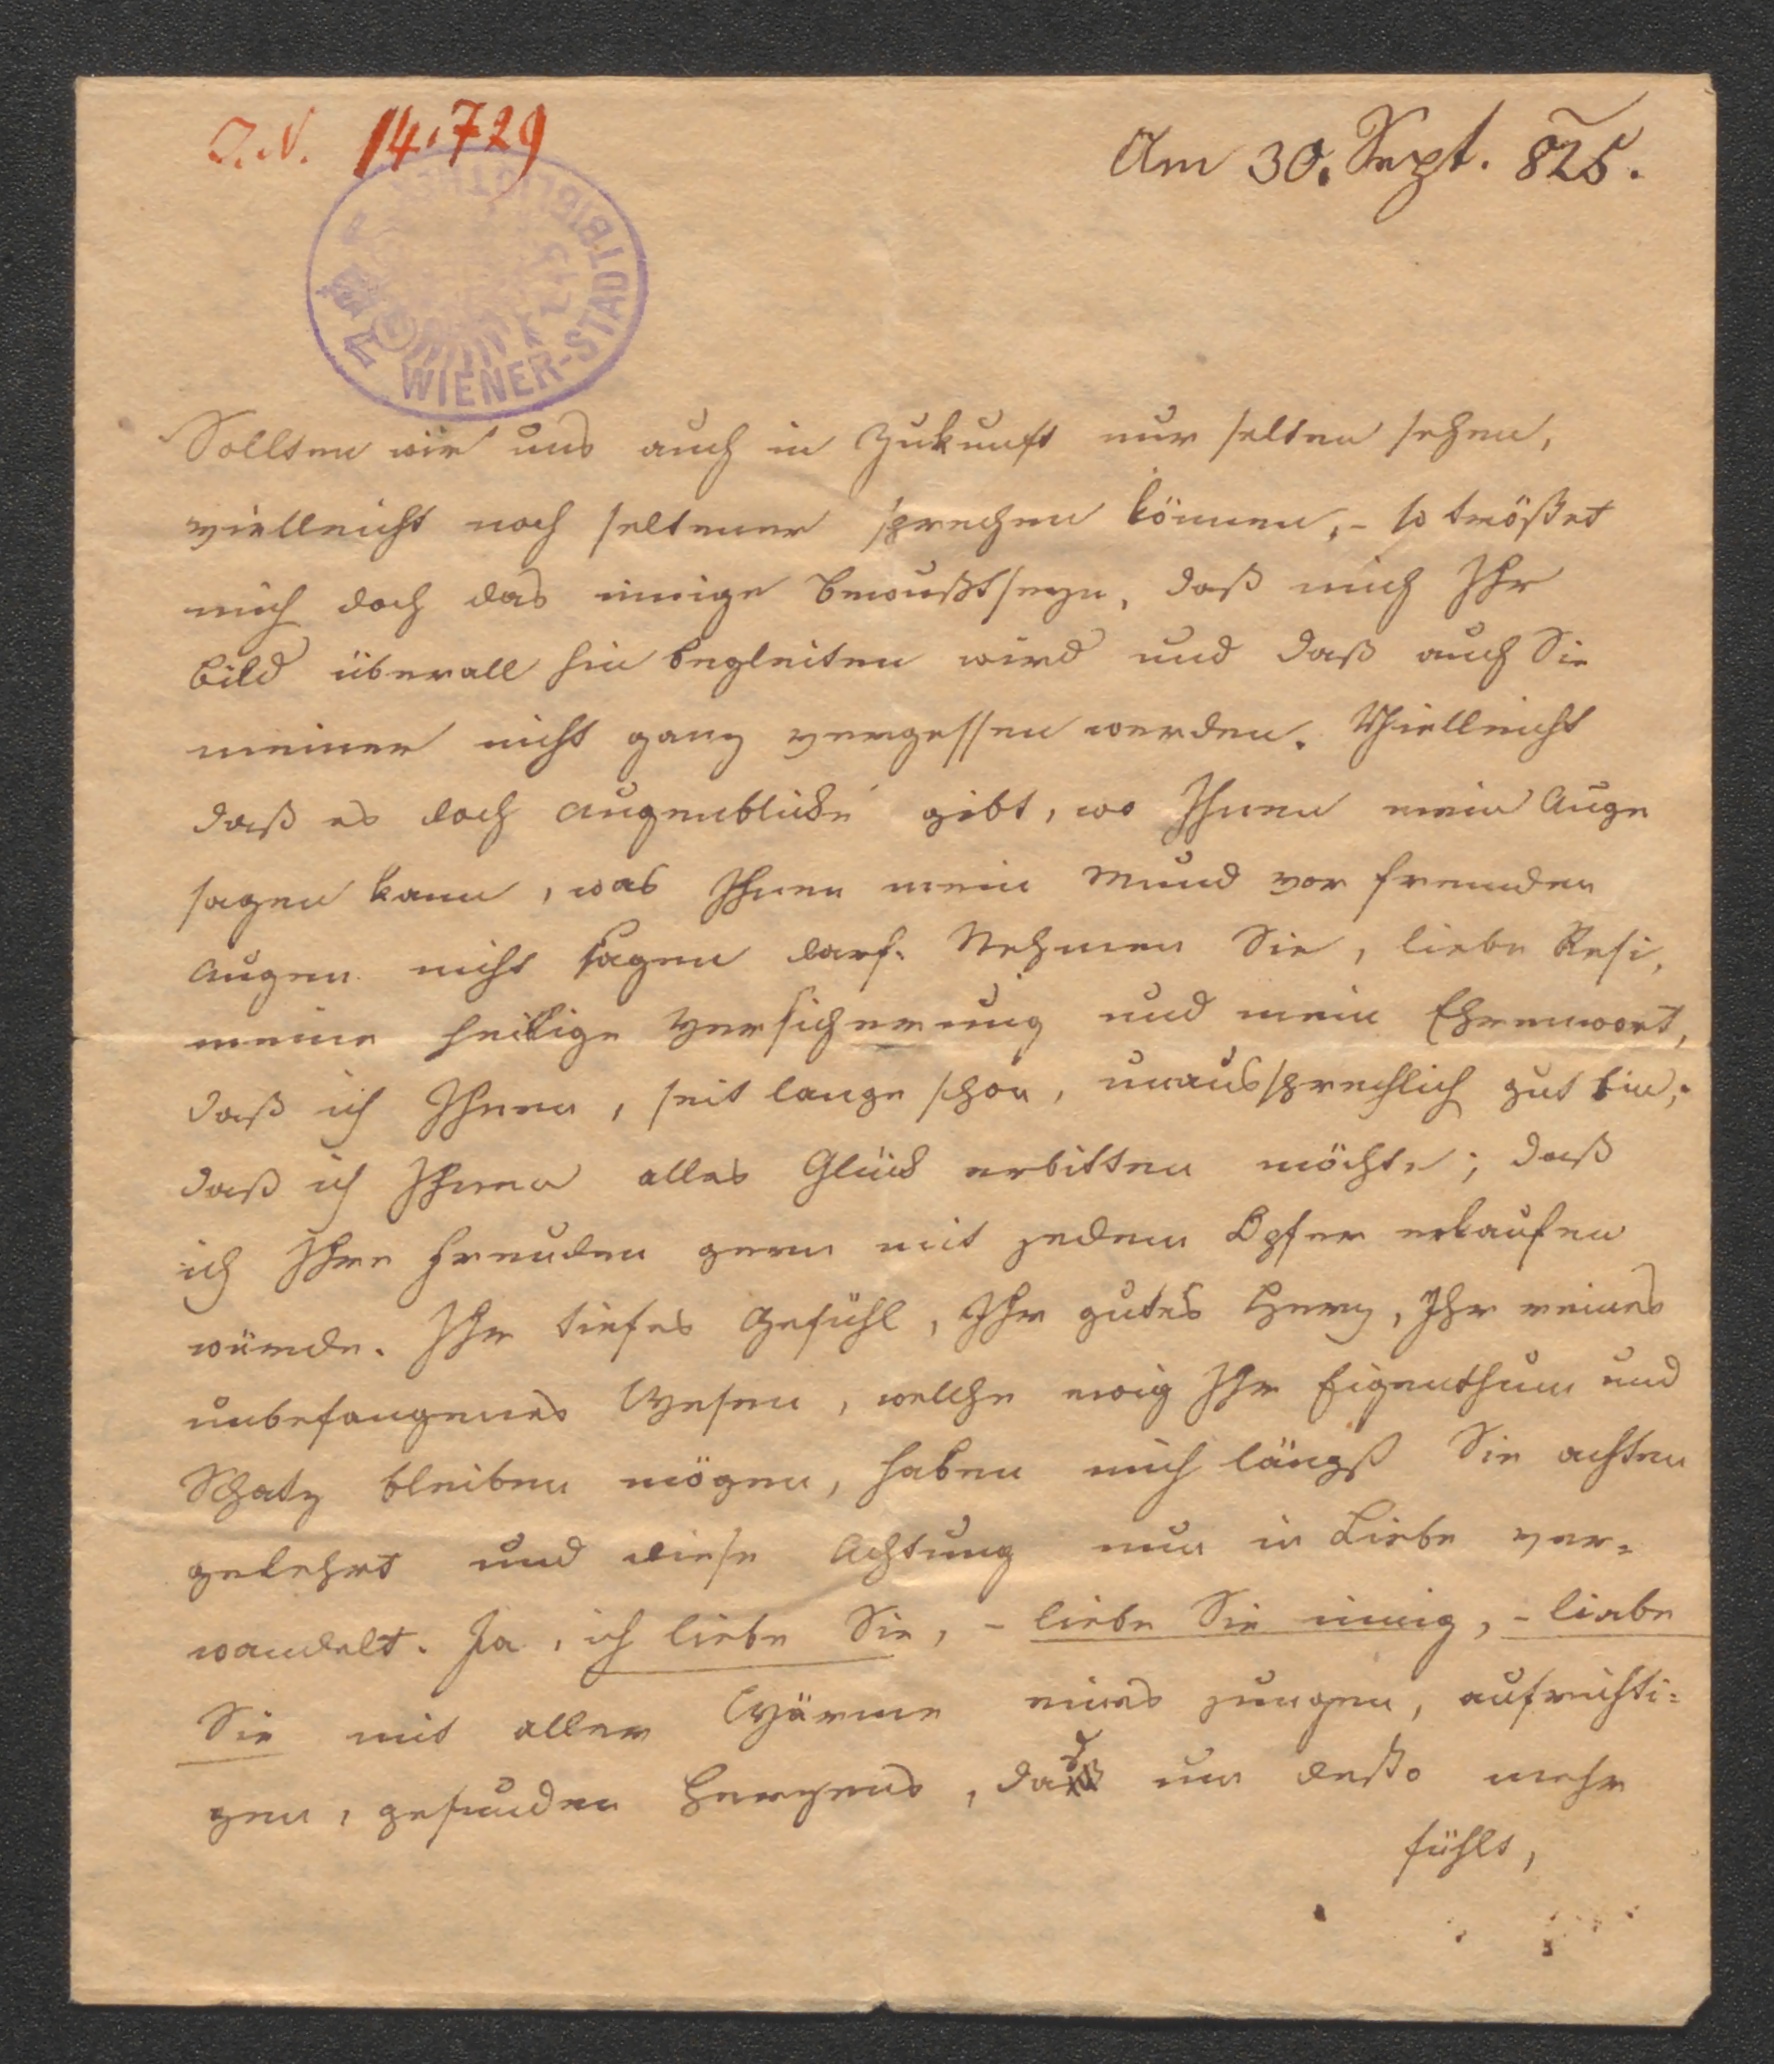 I.N. 14.729
Am 30. Sept. 825.
WIENER-STADTBIBLIOTHEK
Sollten wir uns auch in Zukunft nur selten sehen,
vielleicht noch seltener sprechen können, - so tröstet
mich doch das innige Bewußtseyn, daß mich Ihr
Bild überall hin begleiten wird und daß auch Sie
meiner nicht ganz vergessen werden. Vielleicht
daß es doch Augenblicke gibt, wo Ihnen mein Auge
sagen kann, was Ihnen mein Mund vor fremden
Augen nicht sagen darf. Nehmen Sie, liebe Resi,
meine heilige Versicherung und mein Ehrenwort,
daß ich Ihnen, seit lange schon, unaussprechlich gut bin;
daß ich Ihnen alles Glück erbitten möchte; daß
ich Ihre Freuden gern mit jedem Opfer erkaufen
würde. Ihr tiefes Gefühl, Ihr gutes Herz, Ihr reines
unbefangenes Wesen, welche ewig Ihr Eigenthum und
Schatz bleiben mögen, haben mich längst Sie achten
gelehrt und diese Achtung nun in Liebe ver=
wandelt. Ja, ich liebe Sie, - liebe Sie innig, - liebe
Sie mit aller Wärme eines jungen, aufrichti=
gen, gesunden Herzens, das um desto mehr
fühlt,